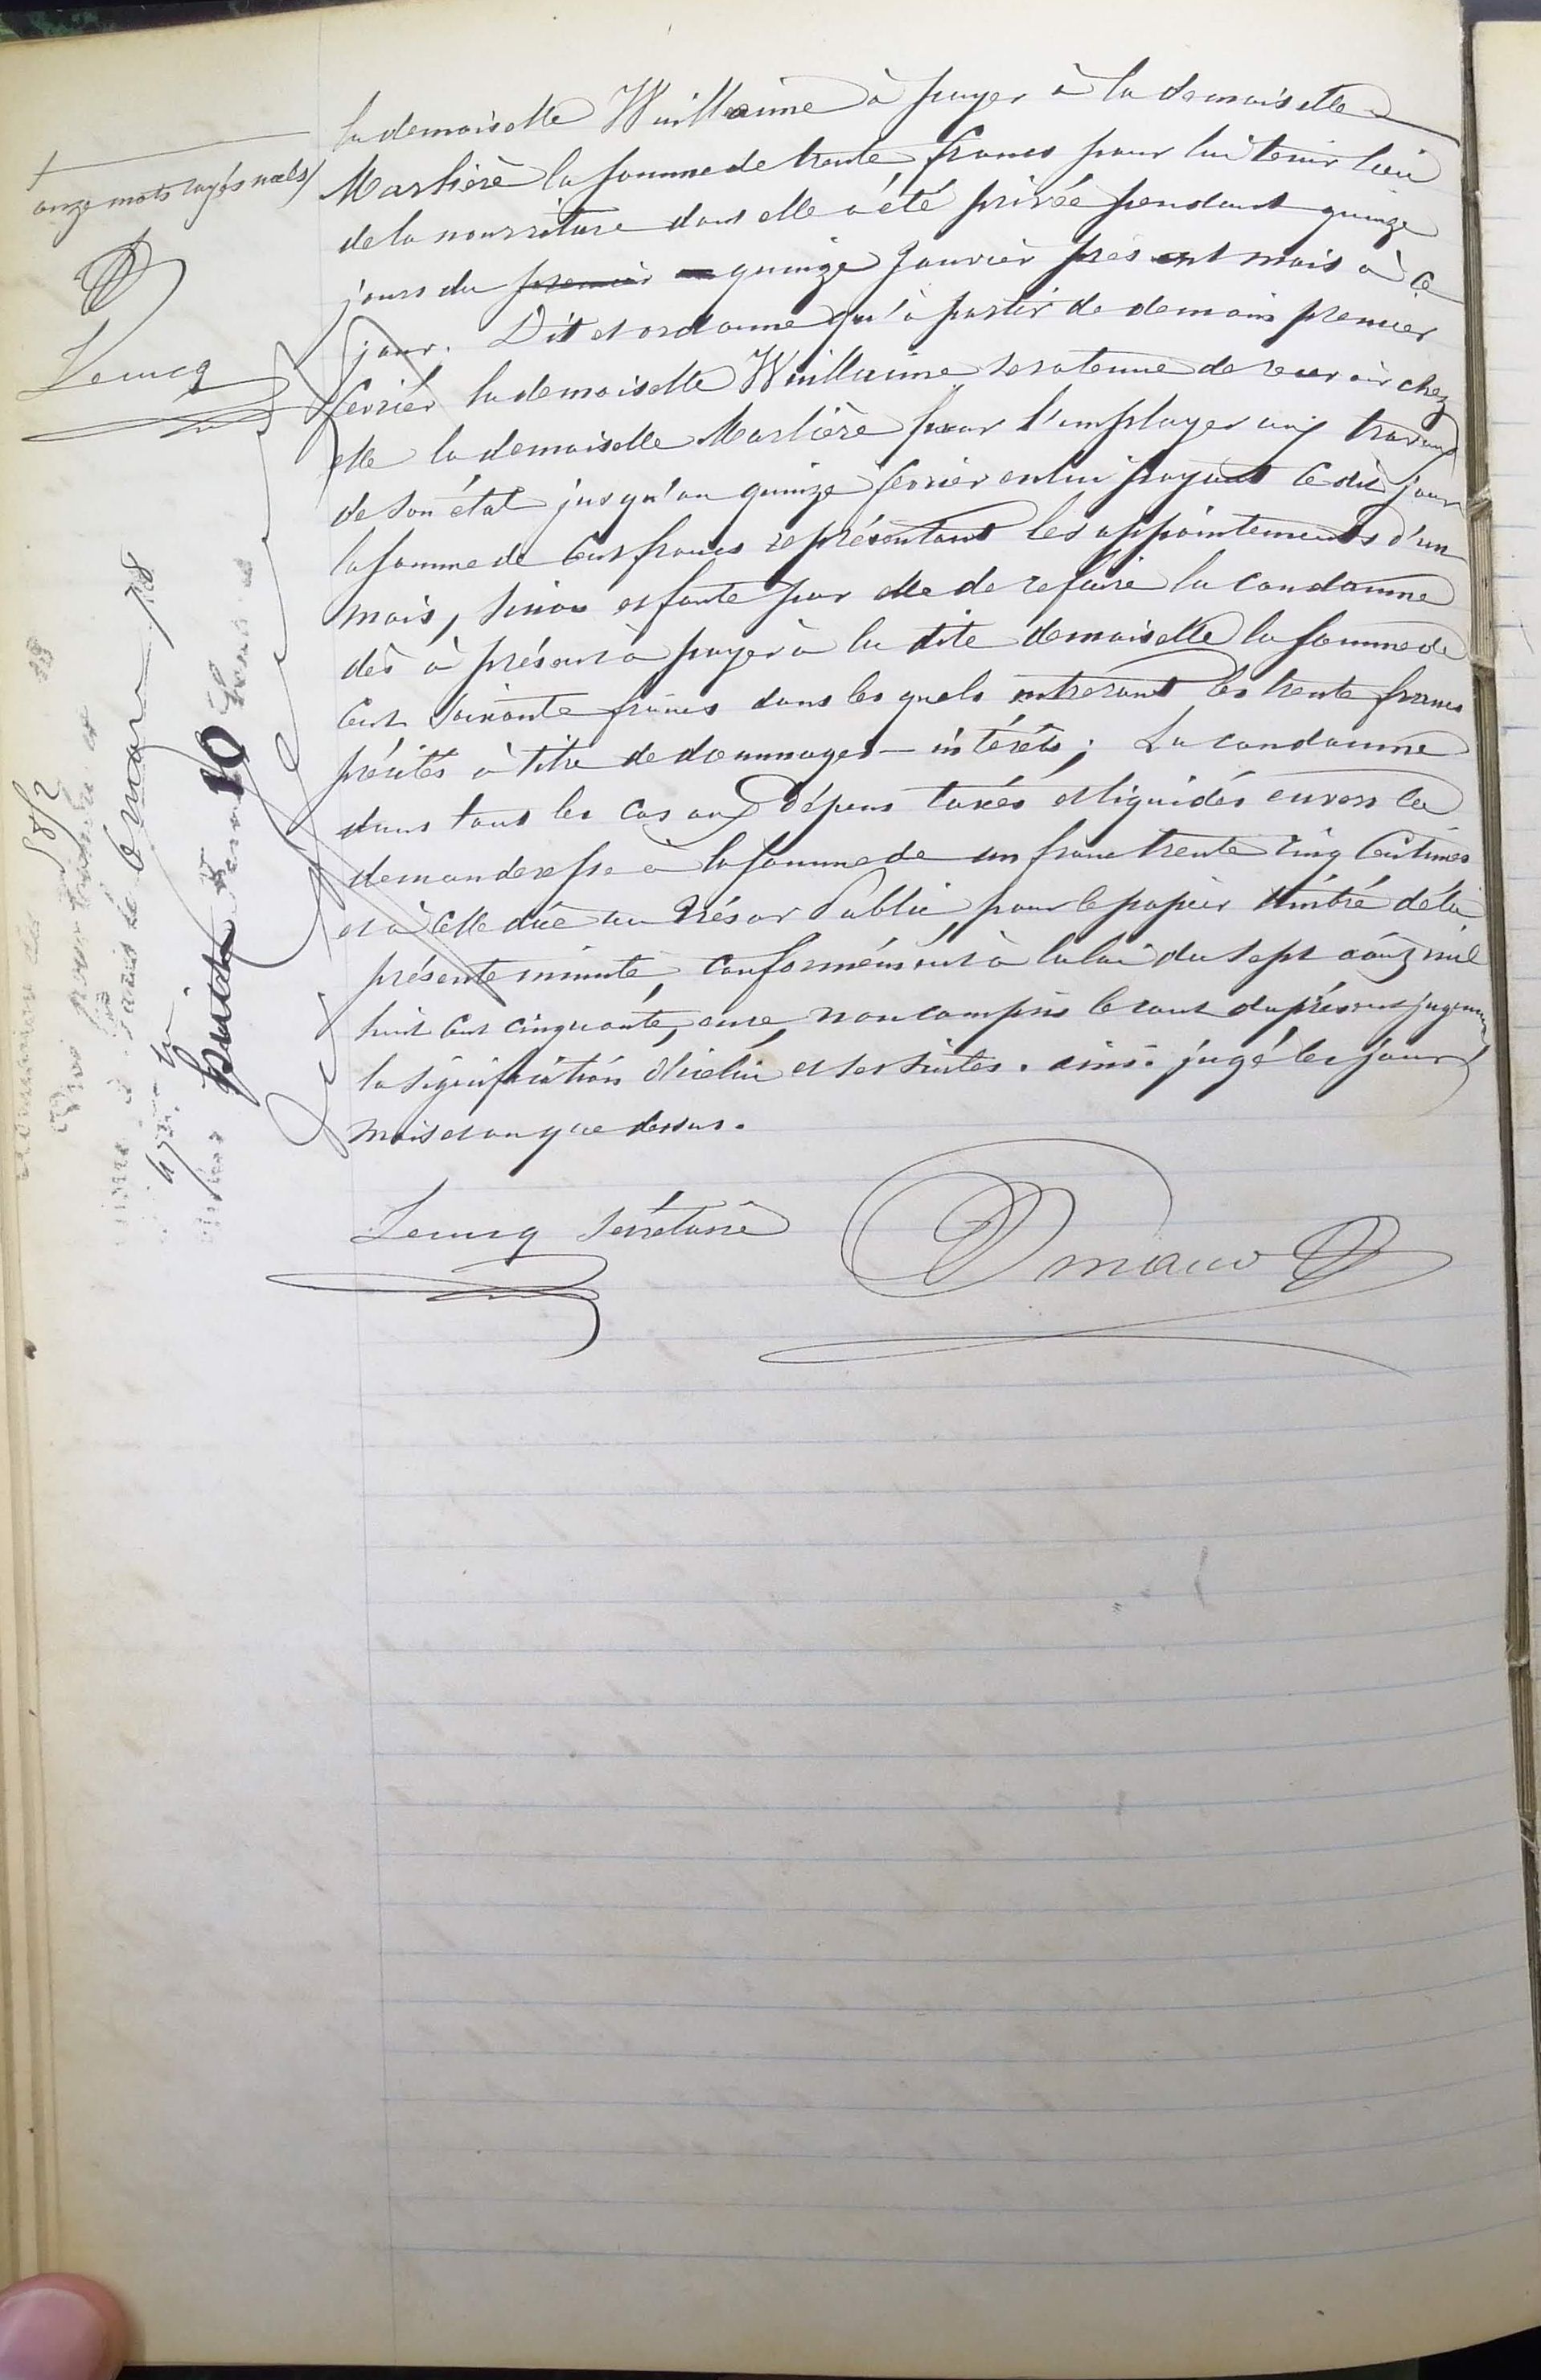 la demoiselle Wuillaume à payer à la demoiselle
Marlière la somme de trente francs pour lui tenir lieu
de la nourriture dont elle a été privée pendant quinze
jours du premier quinze Janvier présent mois à ce
jour. Dit et ordonne qu'à partir de demain premier
février la demoiselle Wuillaume sera tenue de recevoir chez
elle la demoiselle Marlière pour l'employer aux travaux
de son état jusqu'au quinze février en lui payant ce dit jour
la somme de Cent francs représentant les appointements d'un
mois, sinon et faute par elle de ce faire la condamne
dès à présent à payer à la dite demoiselle la somme de
Cent soixante francs dans les quels entreront les trente francs
précités à titre de dommages-intérêts; La condamne
dans tous les cas aux dépens taxés et liquidés envers la
demanderesse à la somme de un franc trente cinq Centimes
et à celle due au Trésor Public pour le papier timbré de la
présente minute, conformément à la loi du sept août mil
huit cent cinquante, ence, non compris le cout du présent jugement,
la signification d'icelui et ses suites. ainsi jugé les jour
mois et an que dessus.
Lecucq secrétaire
onze mots rayés nuls
Lecucq
10